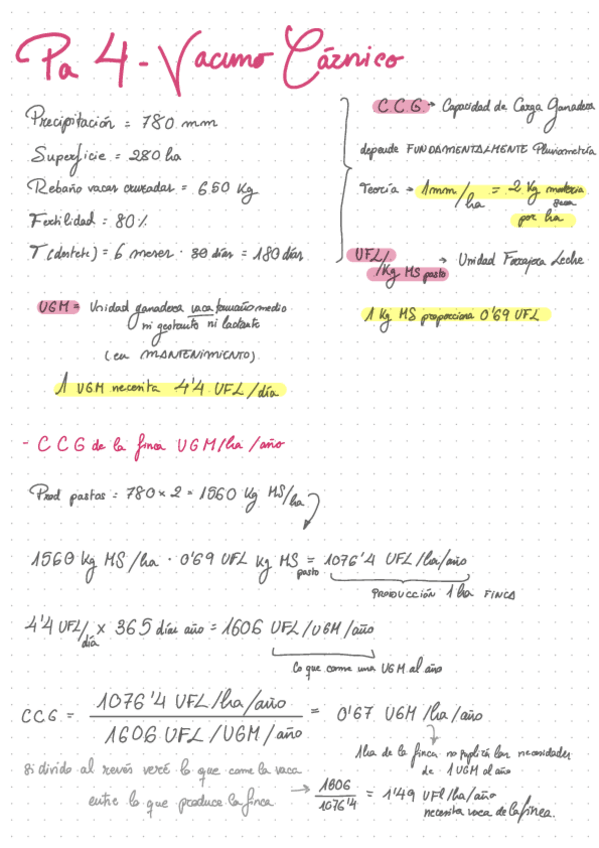 Pa 4 - Vacuno Cárnico
Precipitación = 780 mm
Superficie = 280 ha
Rebaño vacas cruzadas = 650 Kg
Fertilidad = 80%
T (destete) = 6 meses · 30 días = 180 días
CCG → Capacidad de Carga Ganadera
depende FUNDAMENTALMENTE Pluviometría
Teoría → 1mm/ha = 2 Kg materia
seca
por ha
UFL/
/Kg MS pasto → Unidad Forrajera Leche
1 Kg MS proporciona 0'69 UFL
UGM = Unidad ganadera vaca tamaño medio
ni gestante ni lactante
(en MANTENIMIENTO)
1 UGM necesita 4'4 UFL/día
- CCG de la finca UGM/ha/año
Prod pastos = 780 x 2 = 1560 Kg MS/ha
1560 kg MS/ha · 0'69 UFL kg MS pasto = 1076'4 UFL/ha/año
PRODUCCIÓN 1 ha FINCA
4'4 UFL/día x 365 días año = 1606 UFL/UGM/año
Lo que come una UGM al año
CCG = 1076'4 UFL/ha/año / 1606 UFL/UGM/año = 0'67 UGM/ha/año
1ha de la finca no las necesidades
de 1 UGM al año
Si divido al revés veré lo que come la vaca
entre lo que produce la finca → 1606/1076'4 = 1'49 UFl/ha/año
necesita vaca de la finca.